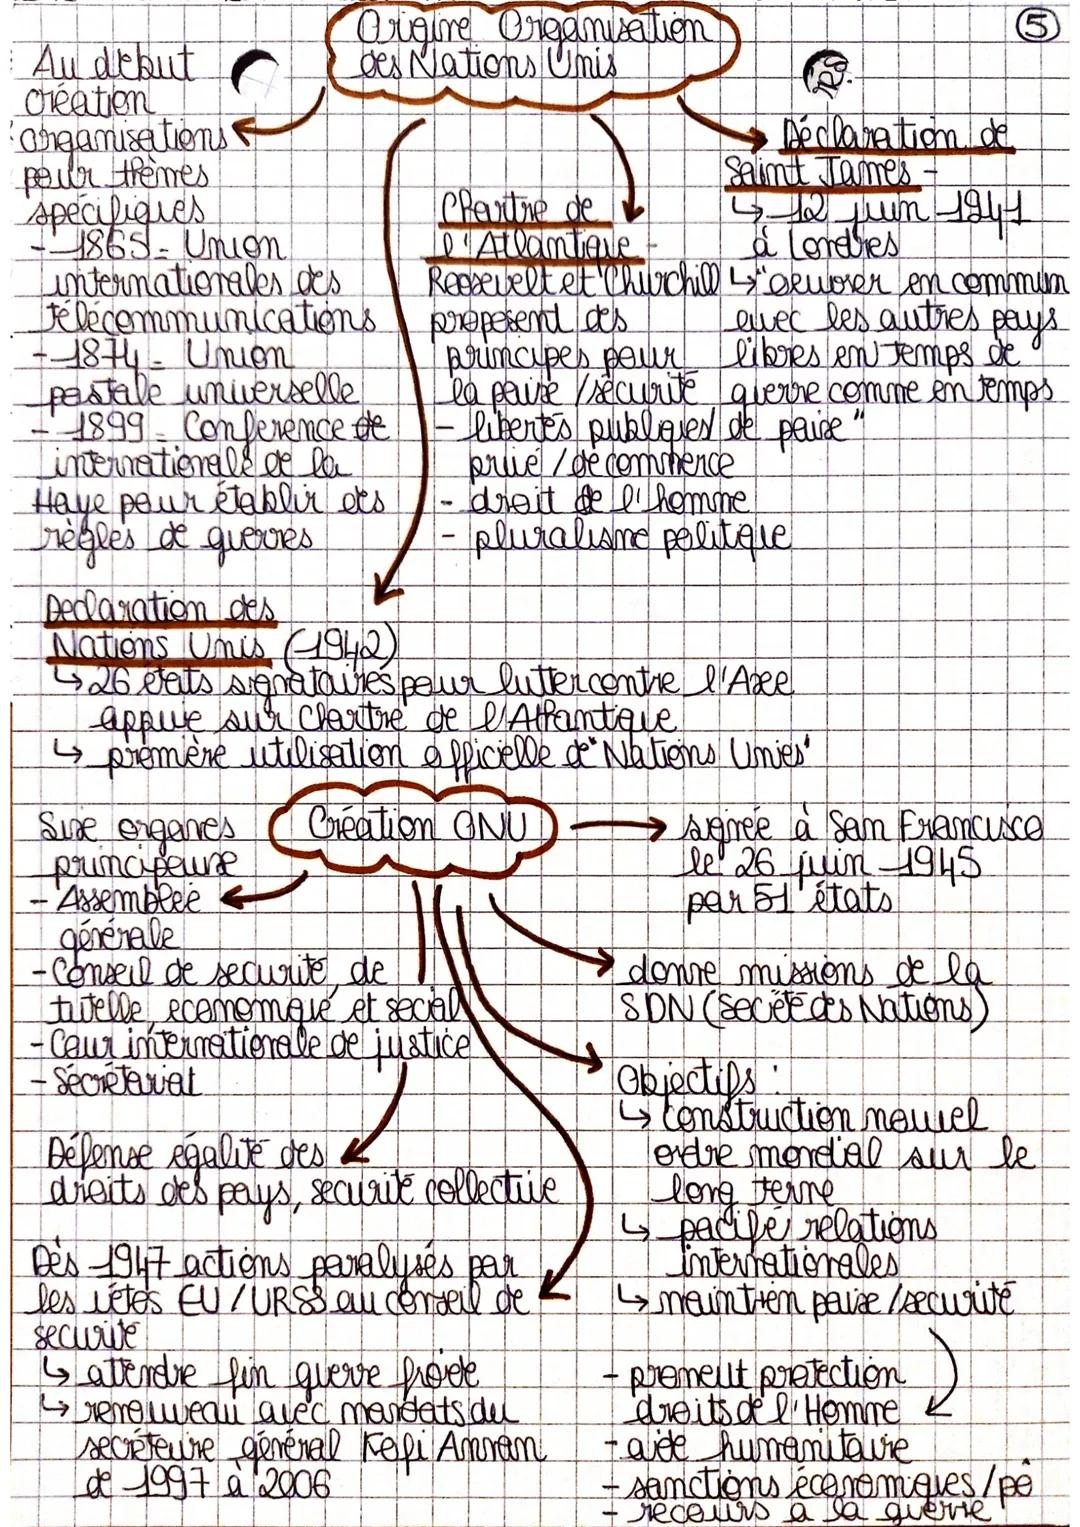 Origine Organisation
des Nations Unis
5
Au début
création
organisations
pour thèmes
spécifiques
- 1865 = Union
internationales des
télécommunications
- 1874 = Union
postale universelle
- 1899 = Conférence de
internationale de la
Haye pour établir des
règles de guerres
Chartre de
l'Atlantique -
Roosevelt et Churchill
proposent des
principes pour
la paix / sécurité
- libertés publiques /
privé / de commerce
- droit de l'homme
- pluralisme politique
Déclaration de
Saint James -
↳ 12 juin 1941
à Londres
↳ "oeuvrer en commun
avec les autres pays
libres en temps de
guerre comme en temps
de paix"
Declaration des
Nations Unis (1942)
↳ 26 états signataires pour lutter contre l'Axe
appuie sur Chartre de l'Atlantique
↳ première utilisation officielle de "Nations Unies"
Création ONU
Six organes
principaux
- Assemblée
générale
- Conseil de securité, de
tutelle, economique et social
- Cour internationale de justice
- Sécrétariat
Défense égalité des
droits des pays, securité collective
Dès 1947 actions paralysés par
les vétos EU / URSS au conseil de
securité
↳ attendre fin guerre froide
↳ renouveau avec mandats du
secrétaire général Kofi Annan
de 1997 à 2006
signée à San Francisco
le 26 juin 1945
par 51 états
donne missions de la
SDN (Société des Nations)
Objectifs :
↳ construction nouvel
ordre mondial sur le
long terme
↳ pacifé relations
internationales
↳ maintien paix / securité
- promeut protection
droits de l'Homme
- aide humanitaire
- sanctions économiques / po
- recours à la guerre